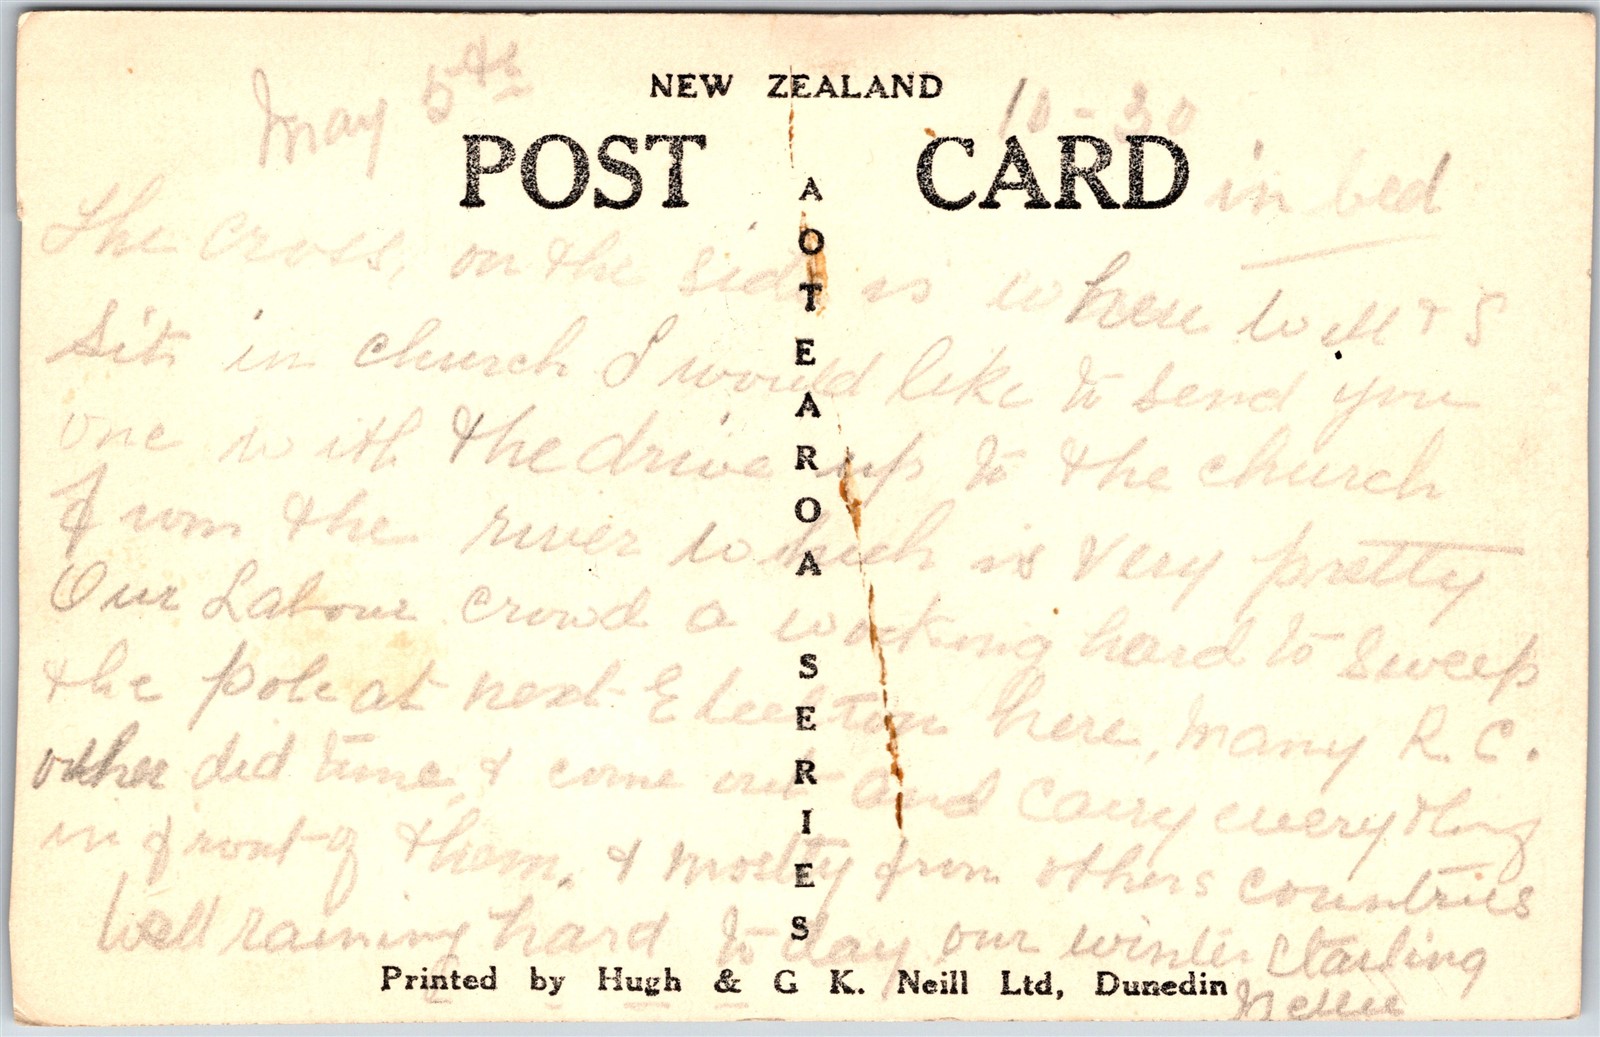 NEW ZEALAND
POST CARD
AOTEAROA SERIES
May 5th
10-30
in bed
The cross, on the side is where Will & S
sits in church I would like to send you
one with the drive up to the church
from the river which is very pretty
Our Labour crowd a working hard to sweep
the pole at next Election here, Many R.C.
other did time, & come out and carry everything
in front of them, & mostly from others countries
Well raining hard to day, our winter starting
Nellie
Printed by Hugh & G K. Neill Ltd, Dunedin